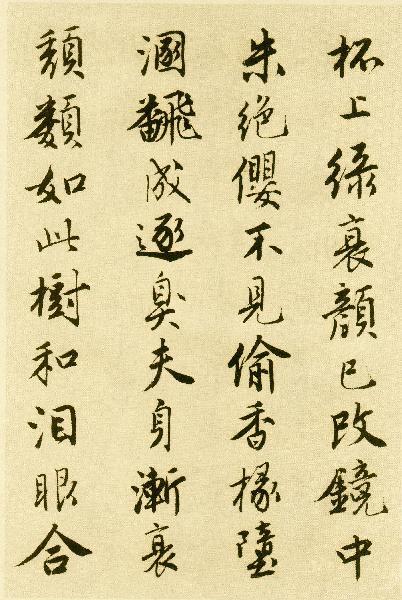 杯上緑衰顔已改鏡中
朱絶纓不見偷香掾墮
溷飜成逐臭夫身漸衰
頽類如此樹和泪眼合